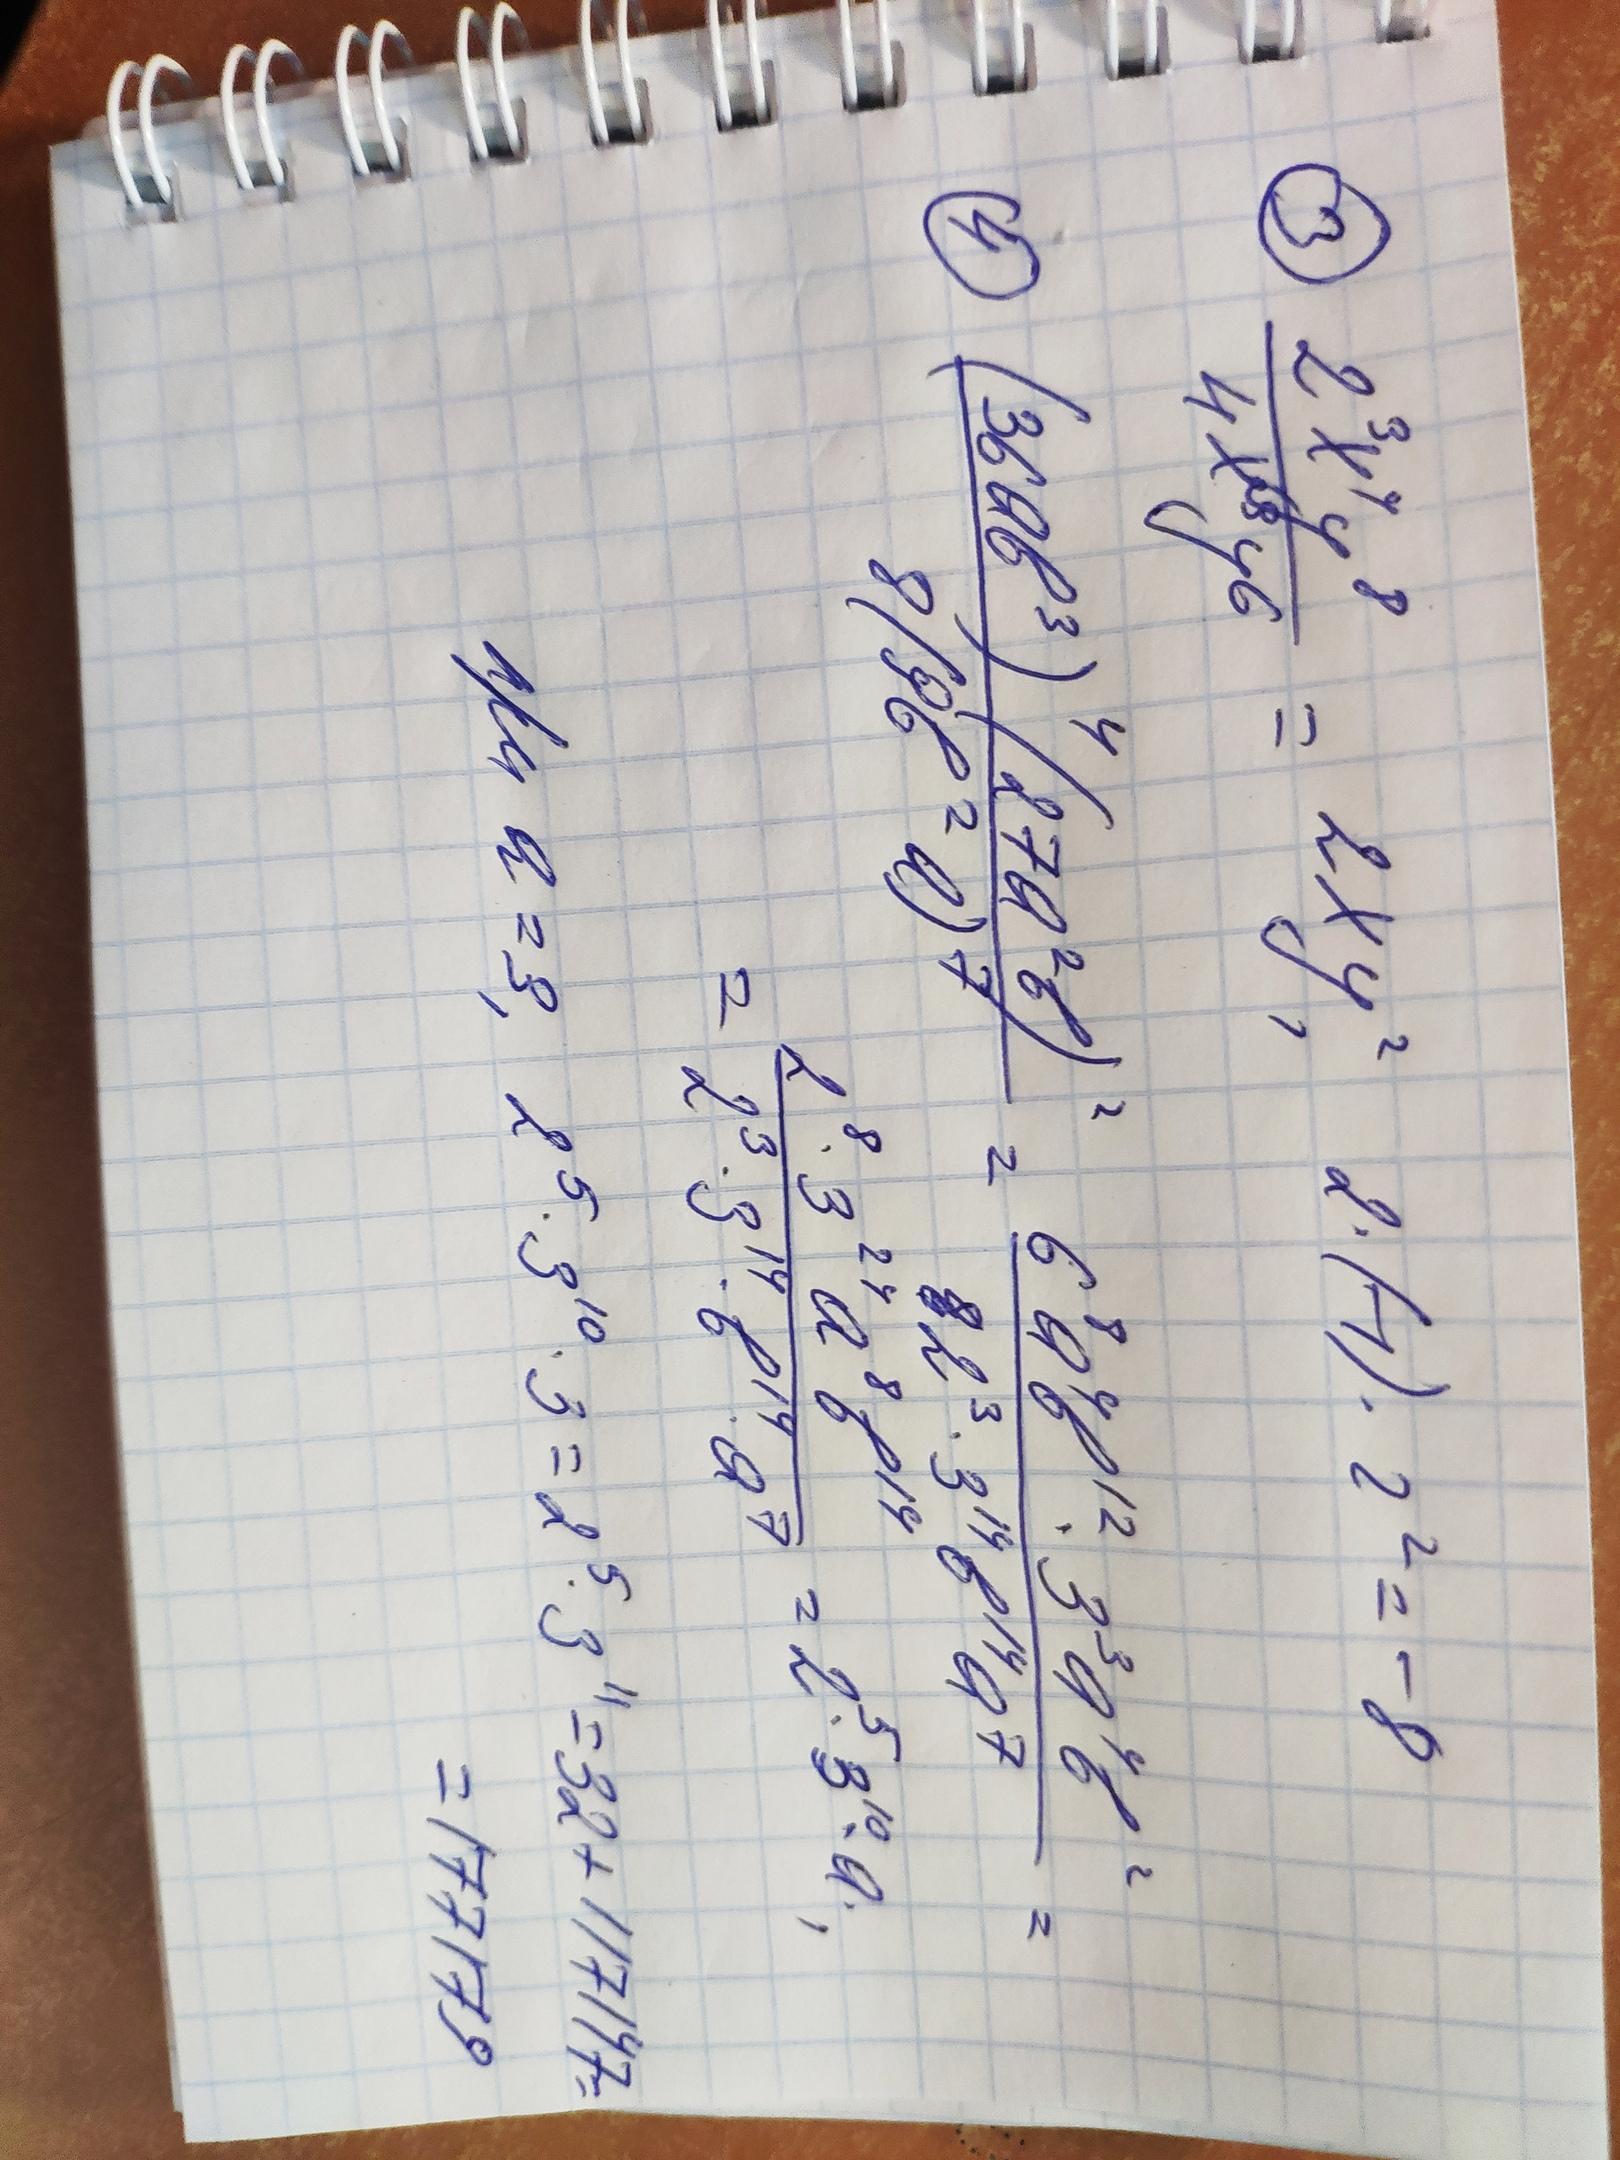 ③ 2³x⁴y⁸ / 4x³y⁶ = 2xy², 2·(-1)·2² = -8
④ (36ab³)⁴(27a²b)² / 8(9b²a)⁷ = 6⁸a⁴b¹²·3³a⁴b² / 2³·3¹⁴b¹⁴a⁷ =
= 2⁸·3²⁴a⁸b¹⁴ / 2³·3¹⁴·b¹⁴·a⁷ = 2⁵·3¹⁰·a;
при a=3, 2⁵·3¹⁰·3=2⁵·3¹¹=32+117147=
=177179